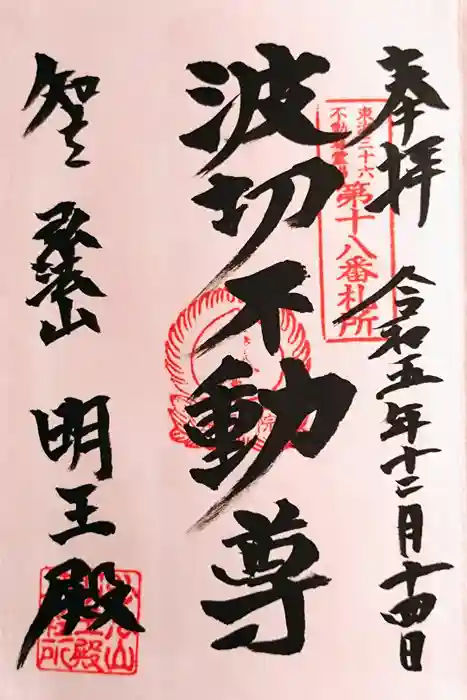 奉拝 令和五年十二月十四日
東海三十六
不動尊霊場
第十八番札所
波切不動尊
知立 弘法山 明王殿